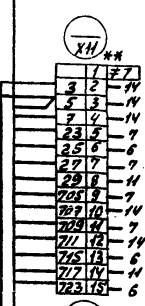 X11
**
1 ≠7
3 2 14
5 3 14
7 4 14
23 5 7
25 6 6
27 7 7
29 8 11
705 9 7
707 10 14
709 11 7
711 12 14
715 13 6
717 14 11
723 15 6